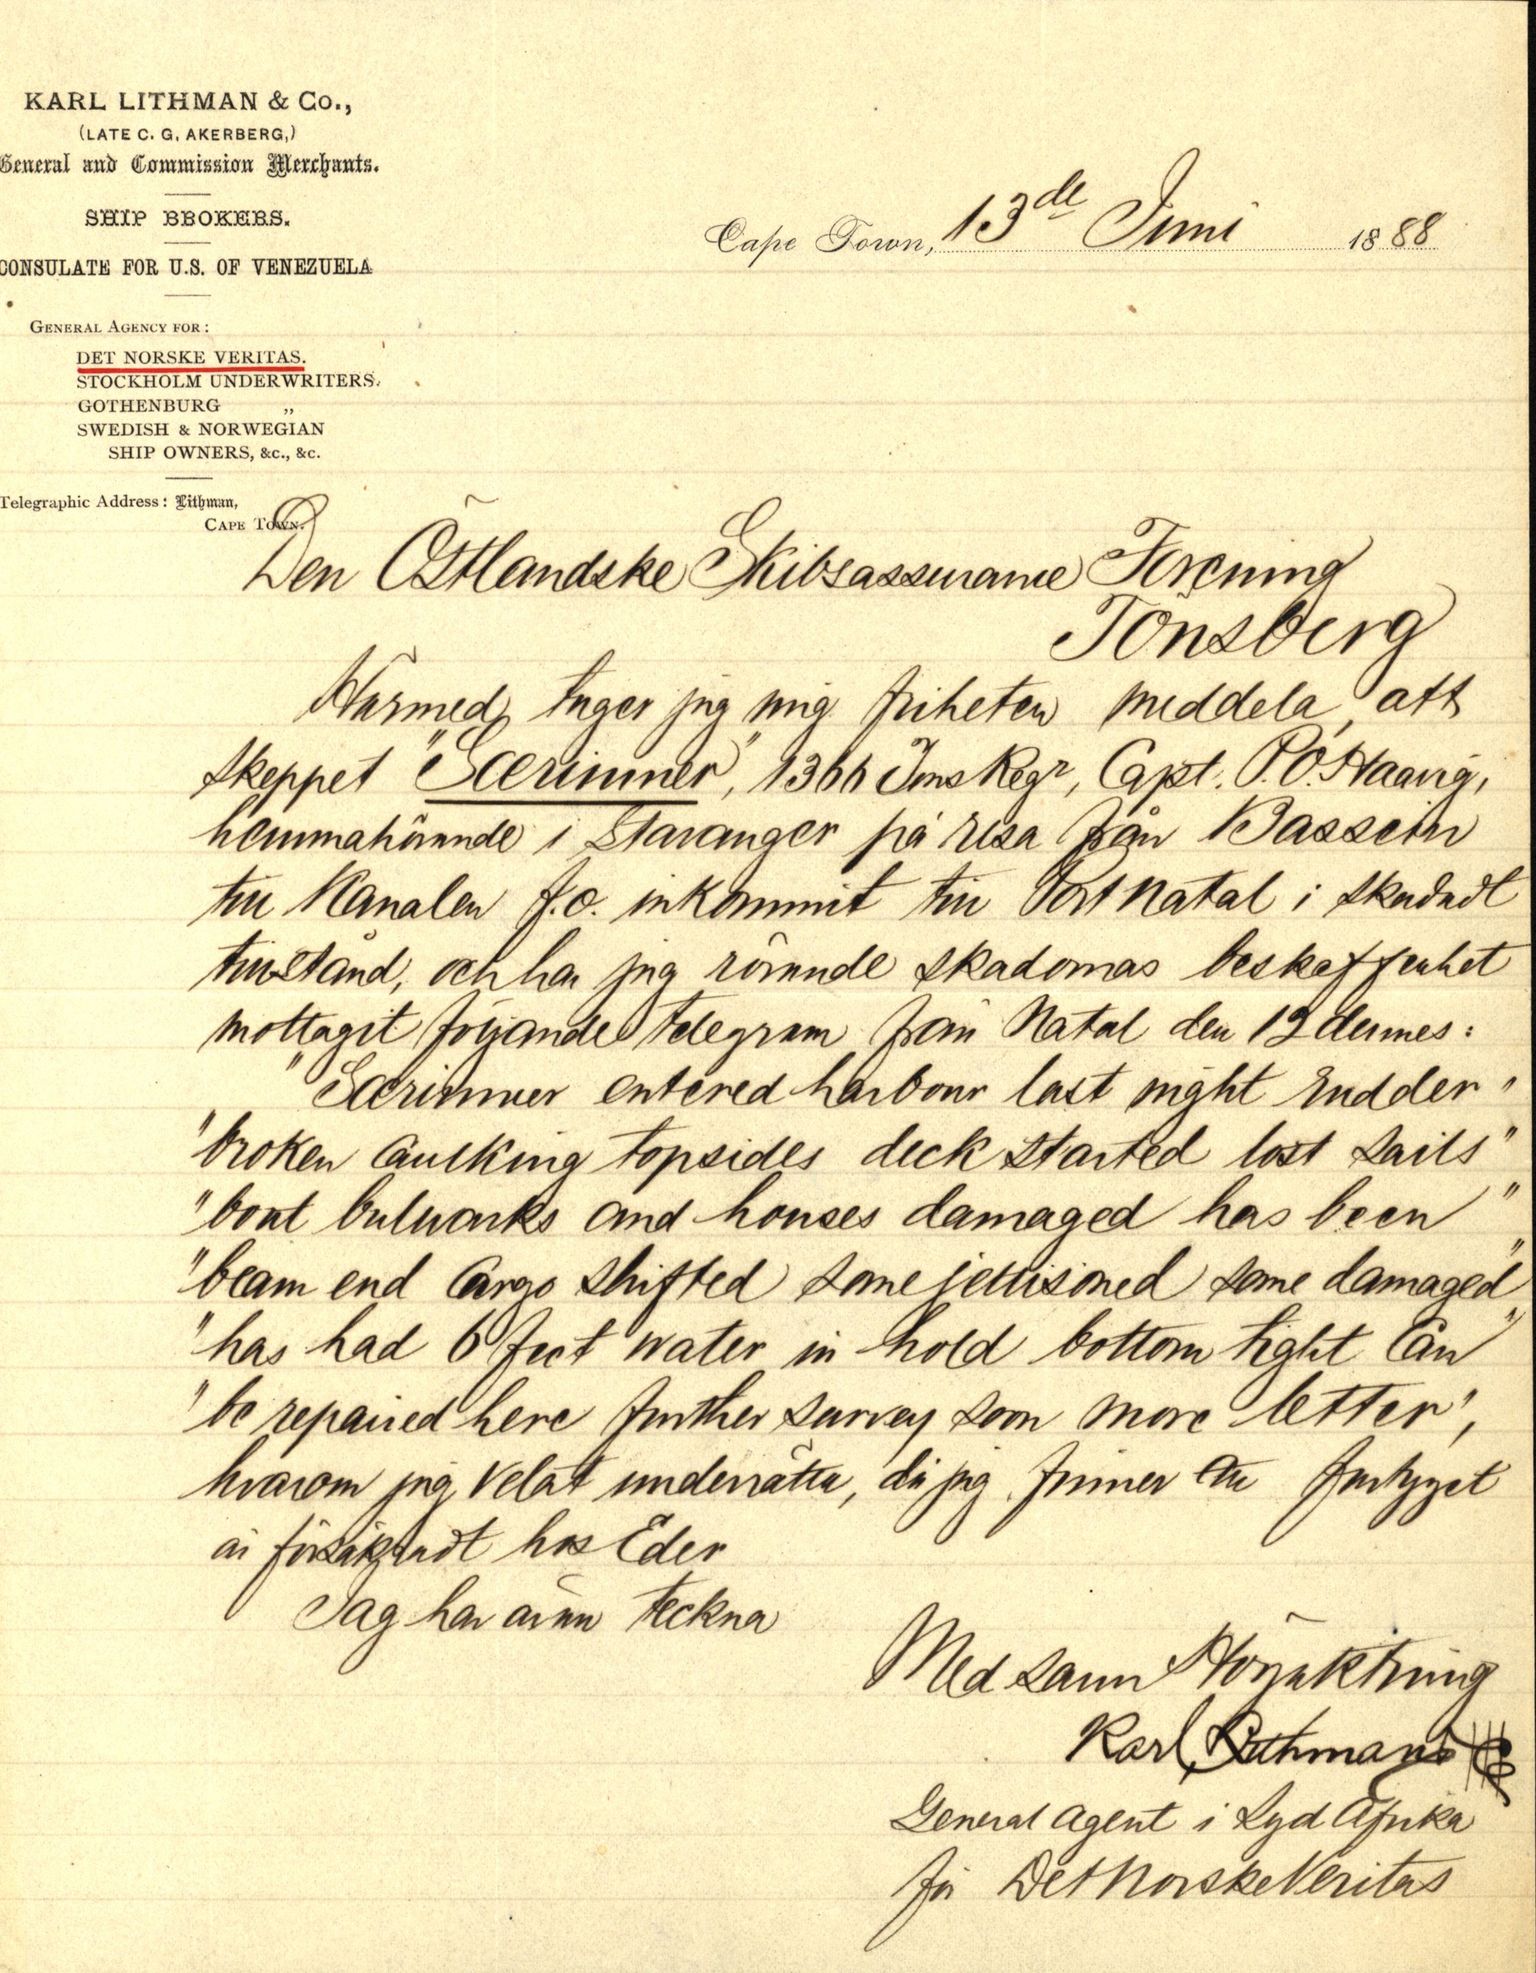 KARL LITHMAN & Co.,
(LATE C. G. AKERBERG,)
General and Commission Merchants.
SHIP BROKERS.
CONSULATE FOR U.S. OF VENEZUELA
GENERAL AGENCY FOR:
DET NORSKE VERITAS.
STOCKHOLM UNDERWRITERS.
GOTHENBURG „
SWEDISH & NORWEGIAN
SHIP OWNERS, &c., &c.
Telegraphic Address: Lithman,
CAPE TOWN.
Cape Town, 13de Juni 1888
Den Östlandske Skibsassurance Forening
Tönsberg
Härmed tager jag mig friheten meddela att
skeppet "Særimner", 1366 Tons Regr, Capt. P. O. Haavig,
hemmahörande i Stavanger på resa från Bassein
till Kanalen f.o. inkommit till Port Natal i skadadt
tillstånd, och har jag rörande skadornas beskaffenhet
mottagit följande telegram från Natal den 12 dennes:
"Særimner entered harbour last night rudder"
"broken caulking topsides deck started lost sails"
"boat bulwarks and houses damaged has been"
"beam end cargo shifted some jettisoned some damaged"
"has had 6 feet water in hold bottom tight can"
"be repaired here further survey soon more letter",
hvarom jag velat underrätta, då jag finner att fartyget
är försäkradt hos Eder
Jag har äran teckna
Med sann Högaktning
Karl Lithman & Co
General Agent i Syd Afrika
för Det Norske Veritas